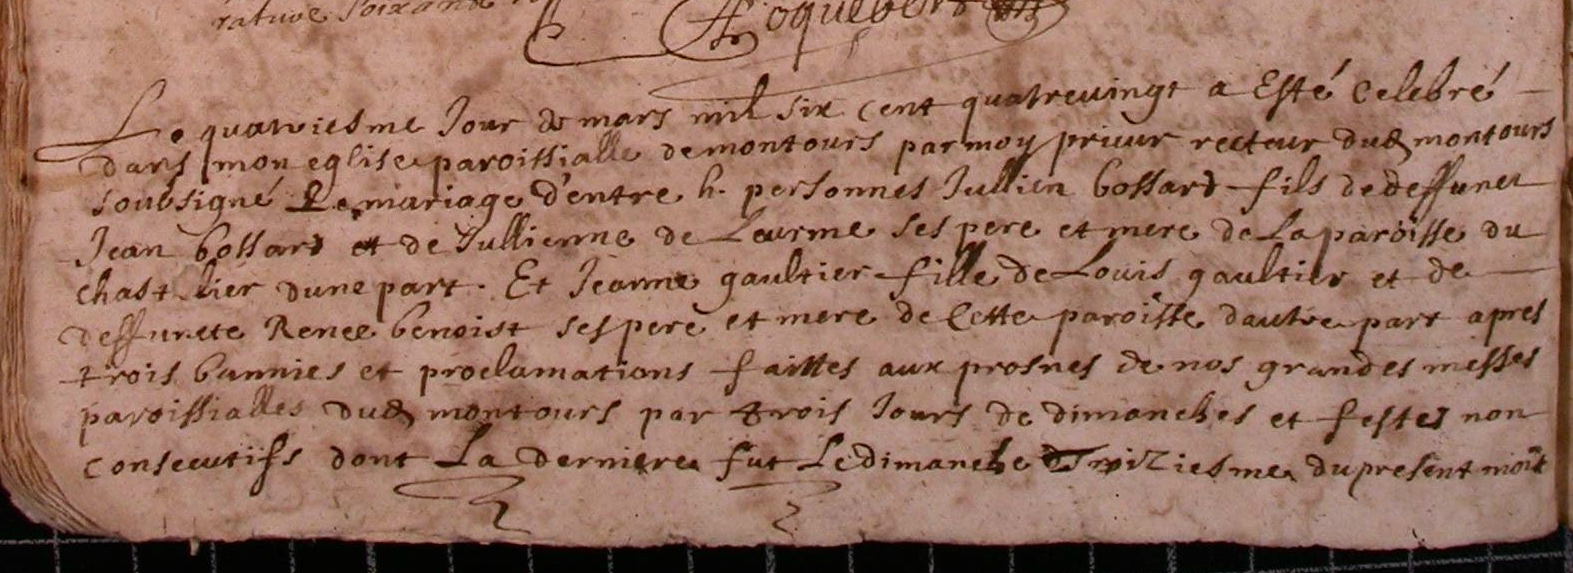 rature soixante
Roquebert
Le quatriesme Jour de mars mil six cent quatrevingt a Esté Celebré
dans mon eglise paroissialle de montours par moy prieur recteur dud montours
soubsigné Le mariage d'entre h. personnes Jullien bossard fils de deffunct
Jean bossard et de Jullienne de Leurme ses pere et mere de La paroisse du
chastellier dune part. Et Jeanne gaultier fille de Louis gaultier et de
deffuncte Renee benoist ses pere et mere de Cette paroisse dautre part apres
trois bannies et proclamations faittes aux prosnes de nos grandes messes
paroissialles dud montours par trois Jours de dimanches et festes non
consecutifs dont La derniere fut Le dimanche Troiziesme du present mois